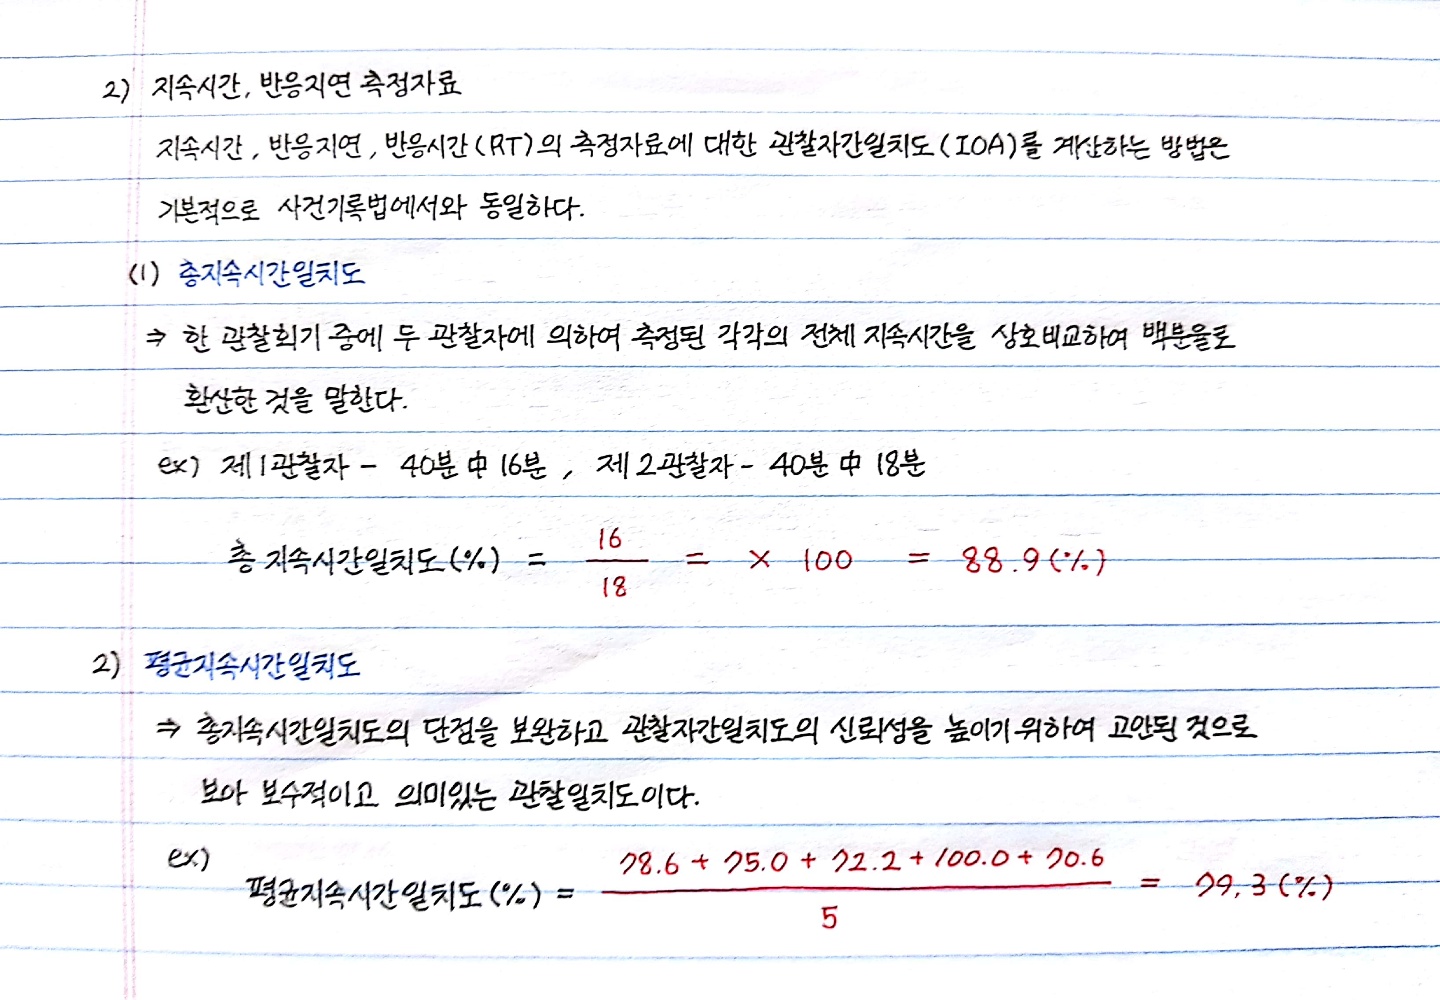 2) 지속시간, 반응지연 측정자료
지속시간, 반응지연, 반응시간(RT)의 측정자료에 대한 관찰자간일치도(IOA)를 계산하는 방법은
기본적으로 사건기록법에서와 동일하다.
(1) 총지속시간일치도
⇒ 한 관찰회기 중에 두 관찰자에 의하여 측정된 각각의 전체 지속시간을 상호비교하여 백분율로
환산한 것을 말한다.
ex) 제1관찰자 - 40분 中 16분, 제2관찰자 - 40분 中 18분
총 지속시간일치도(%) = 16/18 = × 100 = 88.9(%)
2) 평균지속시간일치도
⇒ 총지속시간일치도의 단점을 보완하고 관찰자간일치도의 신뢰성을 높이기 위하여 고안된 것으로
보아 보수적이고 의미있는 관찰일치도이다.
ex)
평균지속시간일치도(%) = 78.6 + 75.0 + 72.2 + 100.0 + 70.6 / 5 = 79.3(%)